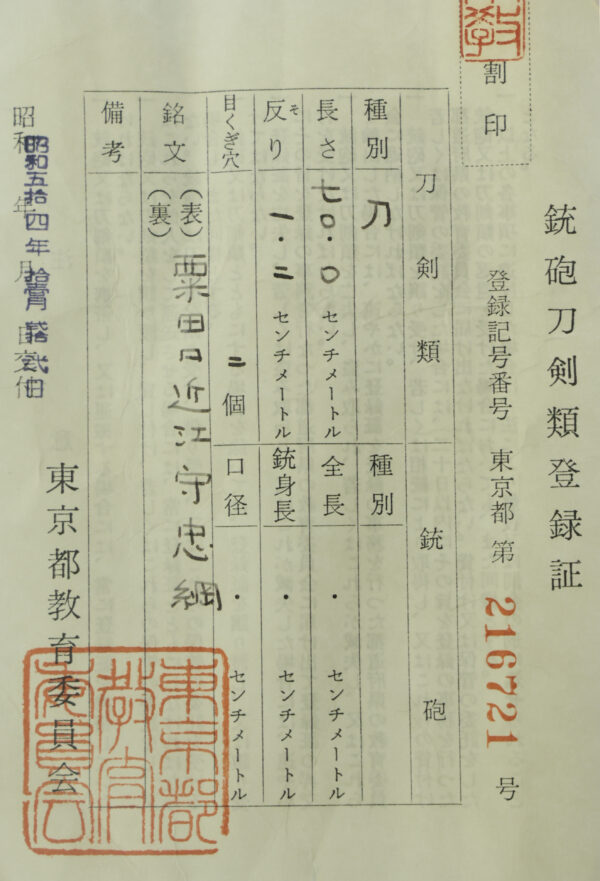 銃砲刀剣類登録証
登録記号番号 東京都 第 216721 号
割印
刀剣類 銃砲
種別 刀 種別
長さ 七〇.〇 センチメートル 全長 ・ センチメートル
反り 一.二 センチメートル 銃身長 ・ センチメートル
そ
目くぎ穴 二 個 口径 ・ センチメートル
銘文 (表) 粟田口近江守忠綱
(裏)
備考
昭和 年 月 日交付
昭和五拾四年
東京都教育委員会
東京都
教育
委員会